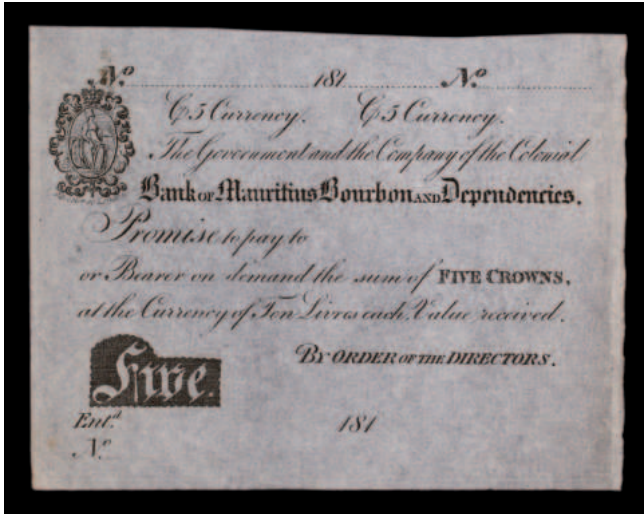 No 181 No
C5 Currency. C5 Currency.
The Government and the Company of the Colonial
Bank of Mauritius Bourbon and Dependencies.
Promise to pay to
or Bearer on demand the sum of FIVE CROWNS,
at the Currency of Ten Livres each. Value received.
BY ORDER OF THE DIRECTORS.
Five.
Ent.d 181
No